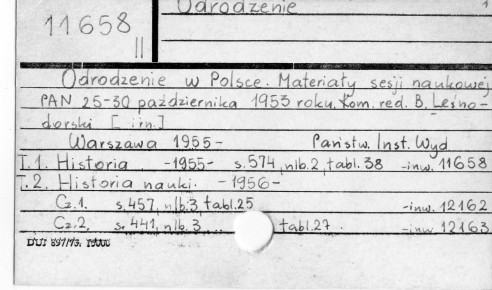 Odrodzenie 1
11658
II
Odrodzenie w Polsce. Materiały sesji naukowej
PAN 25-30 października 1953 roku. Kom. red. B. Leśno-
dorski [i in.]
Warszawa 1955- Państw. Inst. Wyd
T.1. Historia -1955- s.574, nlb.2, tabl.38 -inw. 11658
T.2. Historia nauki. -1956-
Cz.1. s.457, nlb.3, tabl.25 -inw. 12162
Cz.2. s.441, nlb.3 tabl.27. -inw. 12163